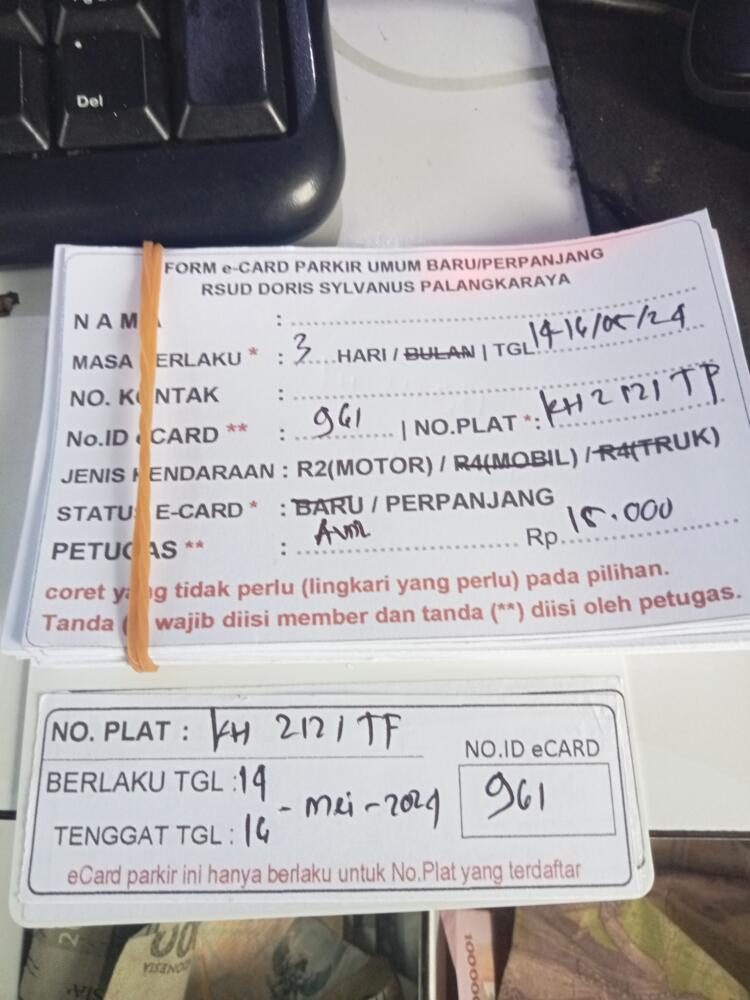 Del
FORM e-CARD PARKIR UMUM BARU/PERPANJANG
RSUD DORIS SYLVANUS PALANGKARAYA
NAMA :
MASA BERLAKU * : 3 HARI / BULAN | TGL 14-16/05/24
NO. KONTAK :
No.ID eCARD ** : 961 | NO.PLAT *: KH 2121 TP
JENIS KENDARAAN : R2(MOTOR) / R4(MOBIL) / R4(TRUK)
STATUS E-CARD * : BARU / PERPANJANG
PETUGAS ** : Rp 15.000
coret yang tidak perlu (lingkari yang perlu) pada pilihan.
Tanda ( wajib diisi member dan tanda (**) diisi oleh petugas.
NO. PLAT : KH 2121 TF
NO.ID eCARD
BERLAKU TGL : 14
961
- Mei - 2024
TENGGAT TGL : 16
eCard parkir ini hanya berlaku untuk No.Plat yang terdaftar